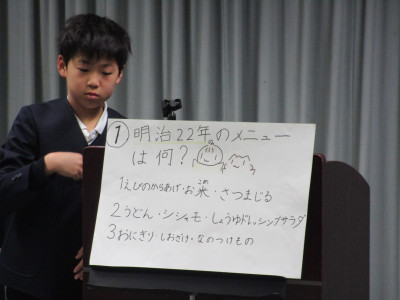 ① 明治22年のメニュー
は何？
1えびのからあげ・お米・さつまじる
こめ
2うどん・シシャモ・しょうゆドレッシングサラダ
3おにぎり・しおざけ・なのつけもの